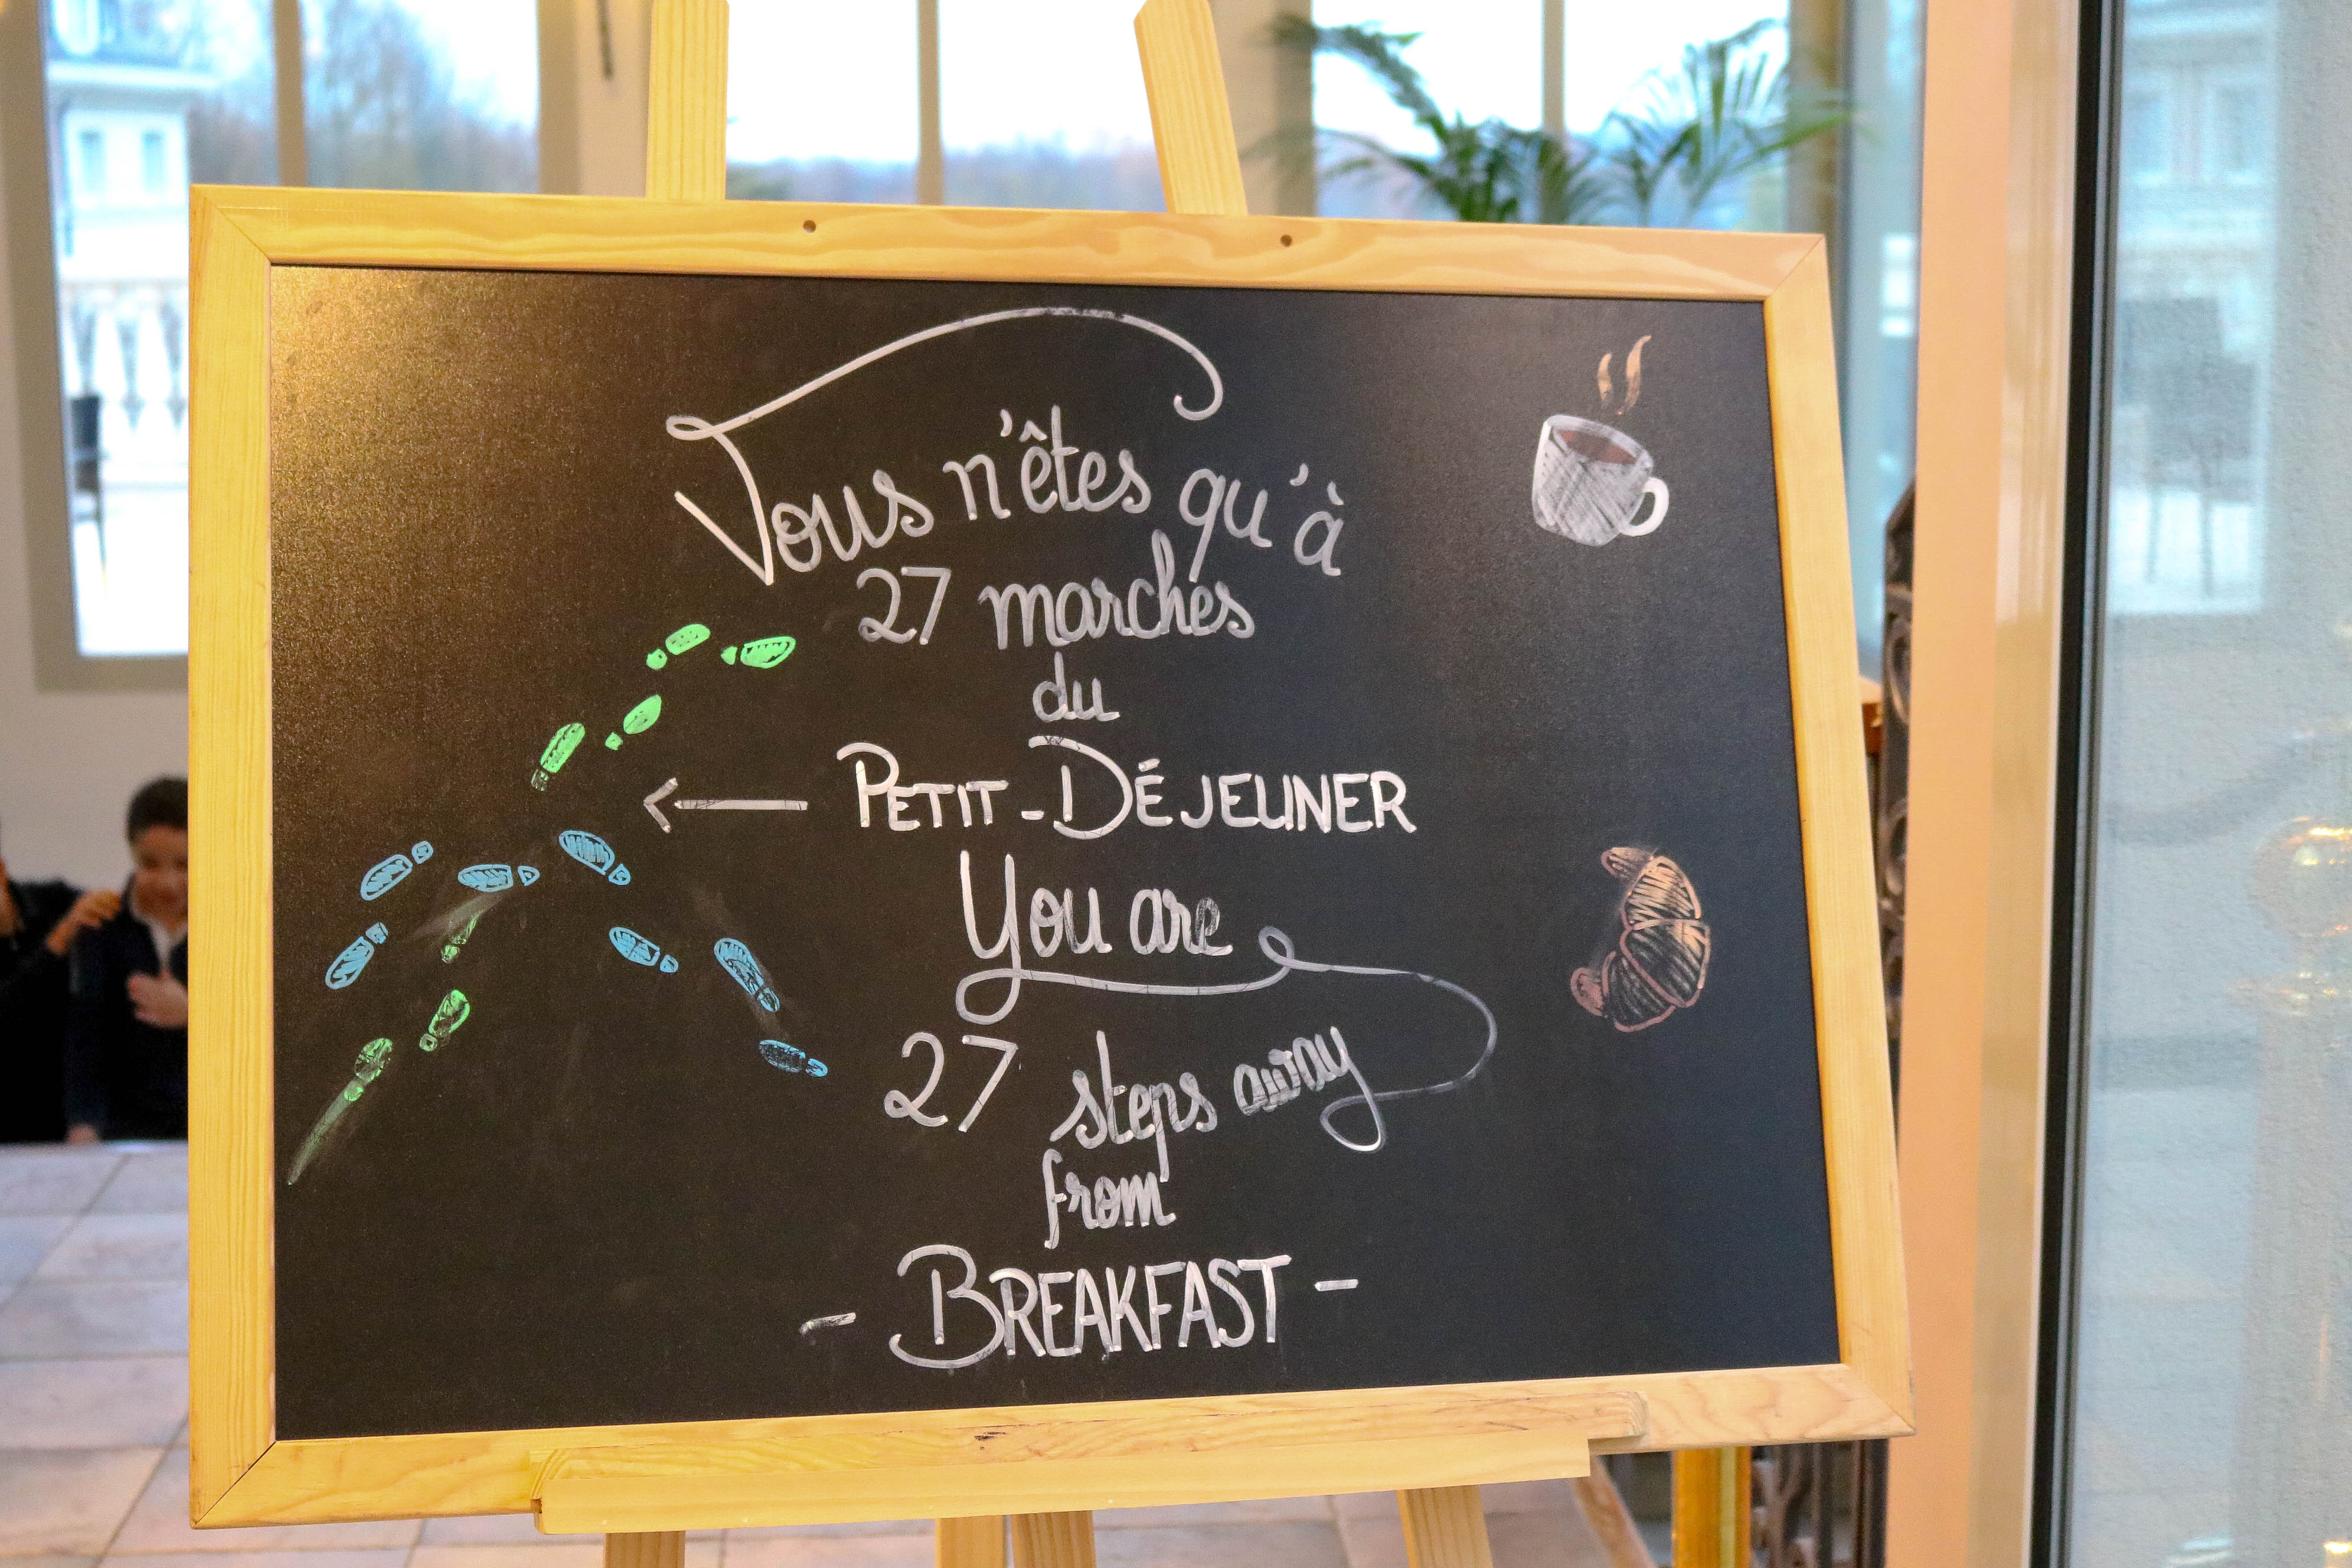 Vous n'êtes qu'à
27 marches
du
PETIT-DÉJEUNER
You are
27 steps away
from
- BREAKFAST -